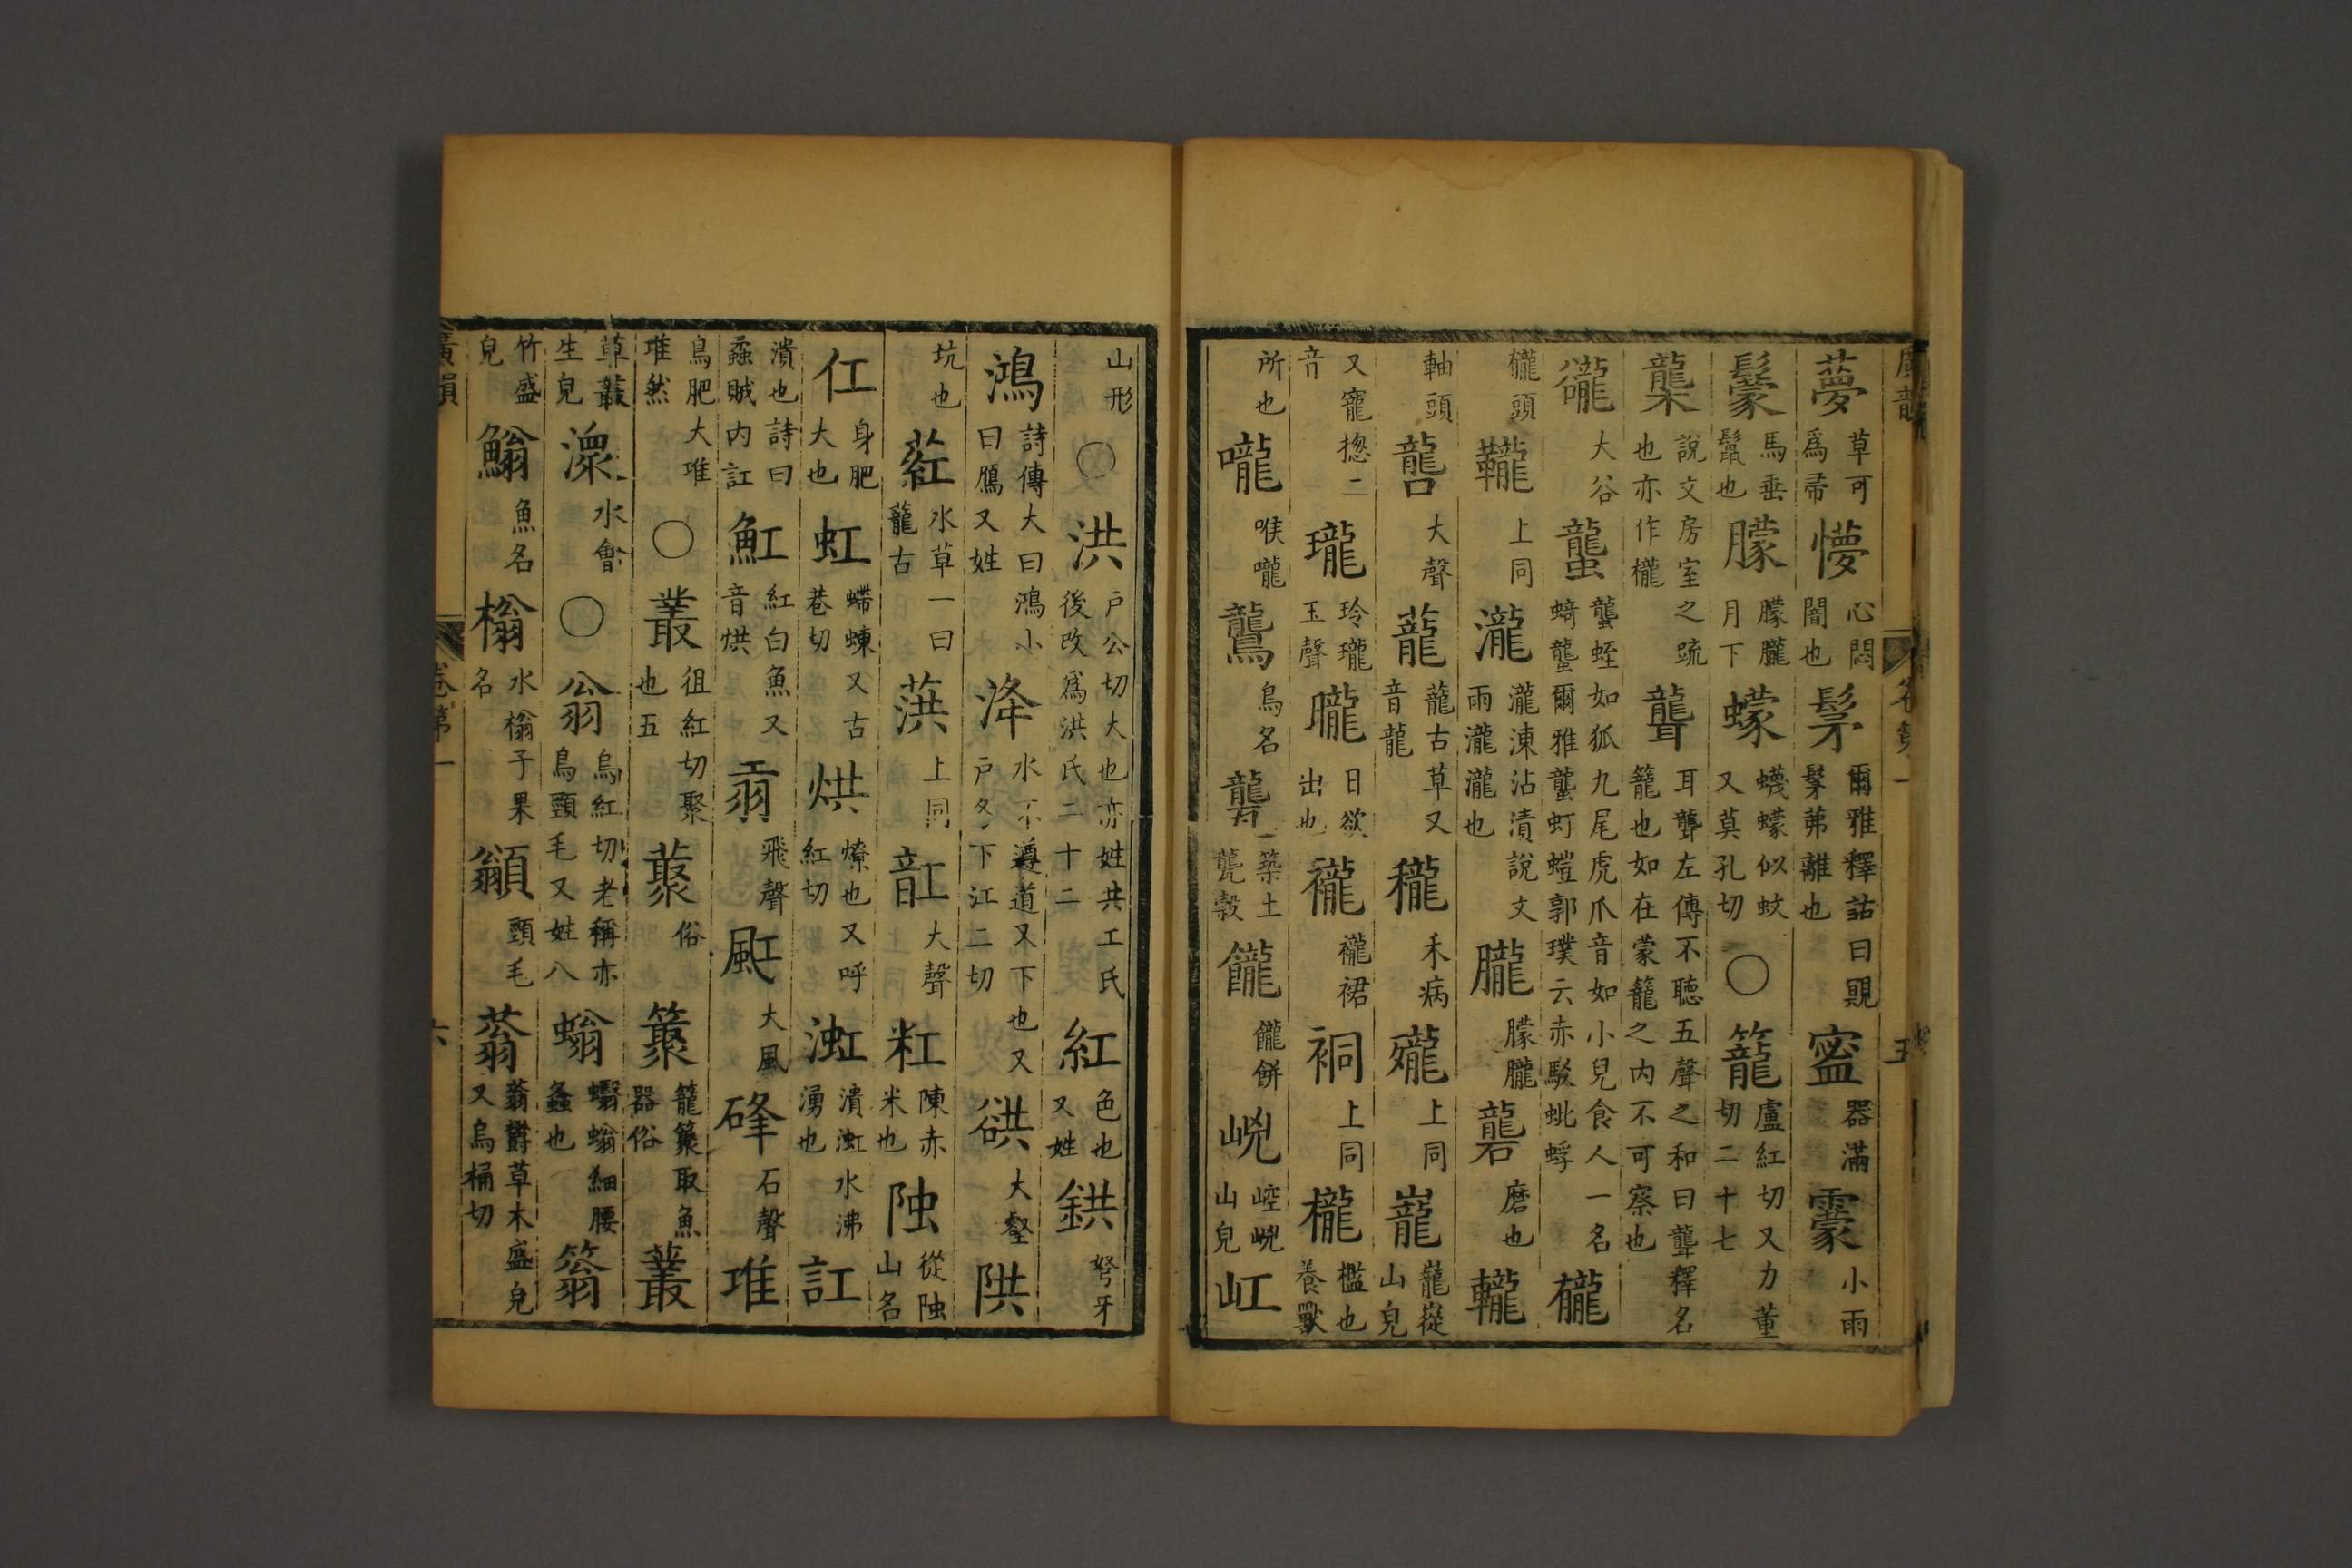 廣韻 卷第一 五
㝱草可爲帚懜心悶闇也髳爾雅釋詁曰覭髳茀離也𥁋器滿霥小雨
鬕馬垂鬣也朦朦朧月下蠓蠛蠓似蚊又莫孔切○籠盧紅切又力董切二十七
櫳說文房室之疏也亦作櫳聾耳聾左傳不聽五聲之和曰聾釋名籠也如在蒙籠之内不可察也
豅大谷蠪蠪蛭如狐九尾虎爪音如小兒食人一名蜻蠪爾雅蠪虰螘郭璞云赤駁蚍蜉龓
龓頭䪊上同瀧瀧涷沾漬說文雨瀧瀧也朧朦朧礱磨也轆
軸頭大聲蘢蘢古草又音龍禾病上同巃巃嵸山皃
又寵揔二音瓏玲瓏玉聲曨日欲出也襱襱裙裥上同櫳檻也養獸
所也嚨喉嚨鸗鳥名築土礱穀餅山皃𡵓
山形○洪户公切大也亦姓共工氏後改爲洪氏二十二紅色也又姓鉷弩牙
鴻詩傳大曰鴻小曰鴈又姓洚水不遵道又下也又户冬下江二切谼大壑䧆
坑也葒水草一曰龍古葓上同䪦大聲粠陳赤米也𨹁從𨹁山名
仜身肥大也虹螮蝀又古巷切烘燎也又呼紅切渱潰渱水沸湧也訌
潰也詩曰蟊賊内訌魟紅白魚又音烘䨎飛聲䫹大風硡石聲琟
鳥肥大琟琟然○叢徂紅切聚也五藂俗䉘籠䉘取魚器俗䕺
草叢生皃潨水會○翁烏紅切老稱亦鳥頸毛又姓八螉蠮螉細腰蠭也䈵
竹盛皃鰯魚名㮬水㮬子果名𩔚頸毛蓊蓊鬱草木盛皃又烏桶切
廣韻 卷第一 六